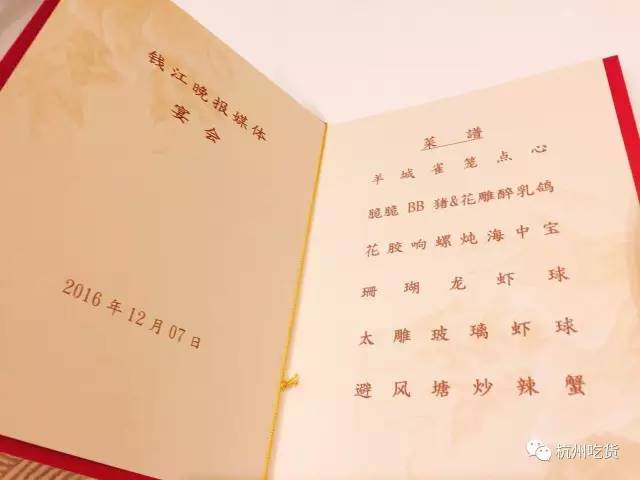 钱江晚报媒体
宴会
2016年12月07日
菜譜
羊城雀笼点心
脆脆BB猪&花雕醉乳鸽
花胶响螺炖海中宝
珊瑚龙虾球
太雕玻璃虾球
避风塘炒辣蟹
杭州吃货